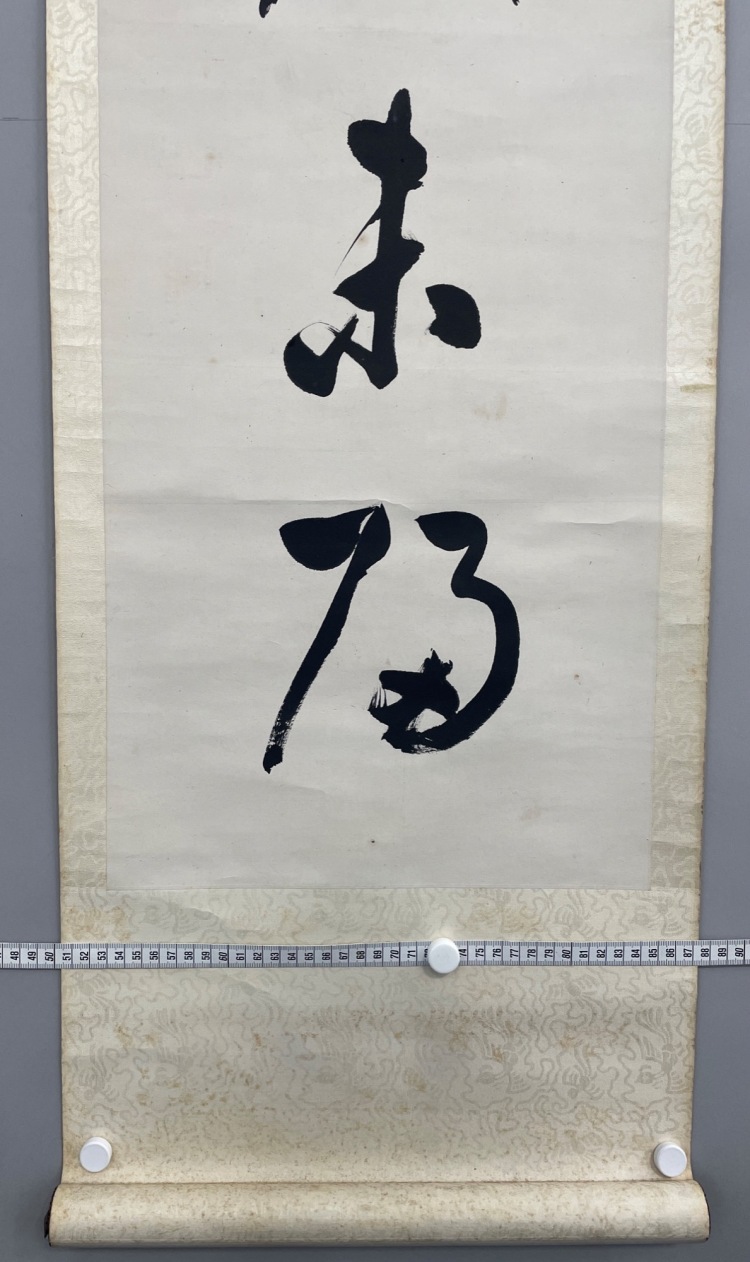 未
歸
48 49 50 51 52 53 54 55 56 57 58 59 60 61 62 63 64 65 66 67 68 69 70 71 74 75 76 77 78 79 80 81 82 83 84 85 86 87 88 89 90